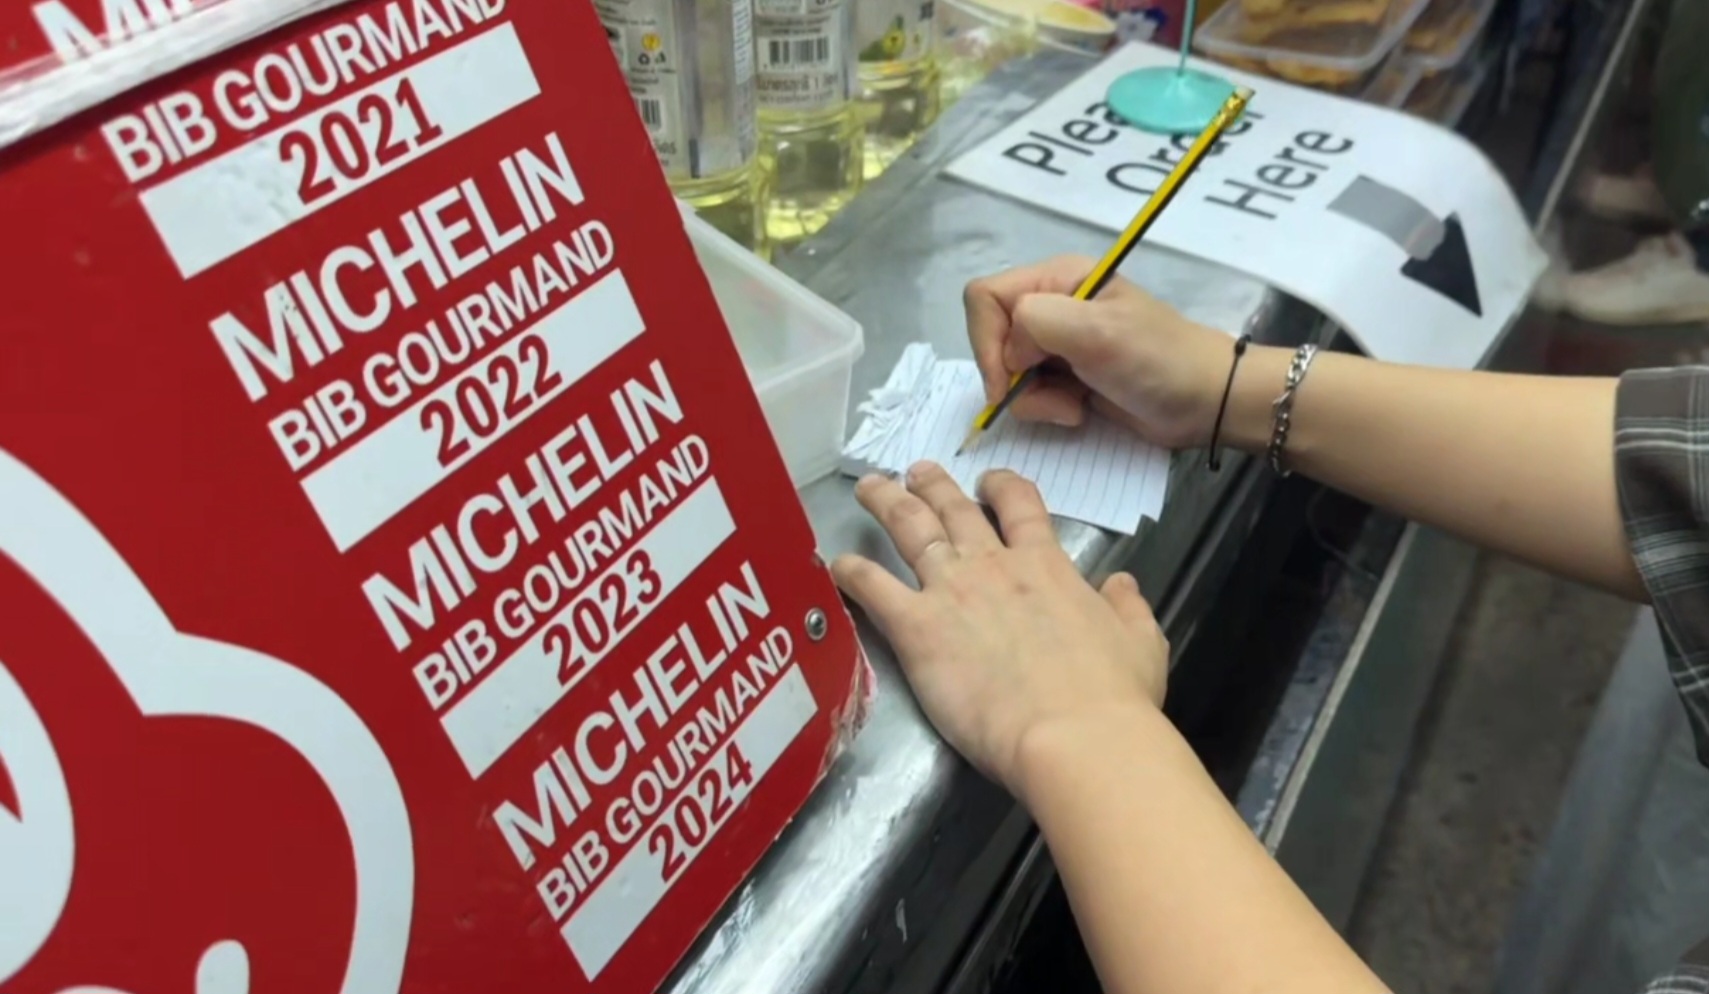 BIB GOURMAND
2021
MICHELIN
BIB GOURMAND
2022
MICHELIN
BIB GOURMAND
2023
MICHELIN
BIB GOURMAND
2024
Order
Here